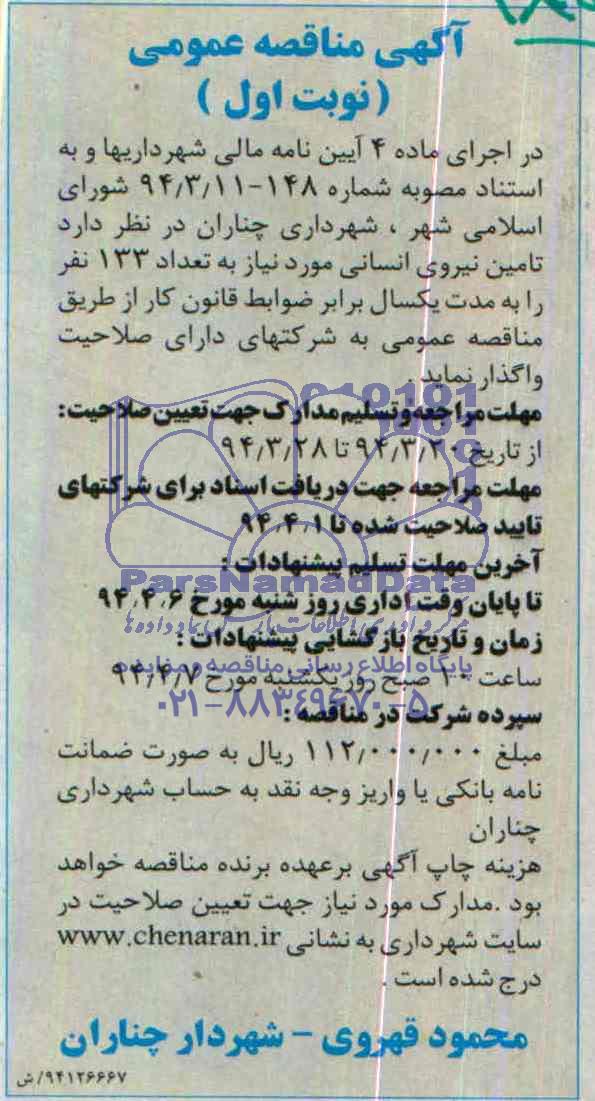 آگهی مناقصه عمومی
(نوبت اول)
در اجرای ماده ۴ آیین نامه مالی شهرداریها و به
استناد مصوبه شماره ۱۴۸-۹۴/۳/۱۱ شورای
اسلامی شهر ، شهرداری چناران در نظر دارد
تامین نیروی انسانی مورد نیاز به تعداد ۱۳۳ نفر
را به مدت یکسال برابر ضوابط قانون کار از طریق
مناقصه عمومی به شرکتهای دارای صلاحیت
واگذار نماید .
مهلت مراجعه و تسلیم مدارک جهت تعیین صلاحیت:
از تاریخ ۹۴/۳/۲۰ تا ۹۴/۳/۲۸
مهلت مراجعه جهت دریافت اسناد برای شرکتهای
تایید صلاحیت شده تا ۹۴/۴/۱
آخرین مهلت تسلیم پیشنهادات :
ParsNamadData
تا پایان وقت اداری روز شنبه مورخ ۹۴/۴/۶
زمان و تاریخ بازگشایی پیشنهادات :
پایگاه اطلاع رسانی مناقصه و مزایده
ساعت ۱۰ صبح روز یکشنبه مورخ ۹۴/۴/۷
۰۲۱-۸۸۳۴۹۶۷۰-۵
سپرده شرکت در مناقصه :
مبلغ ۱۱۲/۰۰۰/۰۰۰ ریال به صورت ضمانت
نامه بانکی یا واریز وجه نقد به حساب شهرداری
چناران
هزینه چاپ آگهی برعهده برنده مناقصه خواهد
بود .مدارک مورد نیاز جهت تعیین صلاحیت در
سایت شهرداری به نشانی www.chenaran.ir
درج شده است .
محمود قهروی - شهردار چناران
۹۴۱۲۶۶۶۷/ش